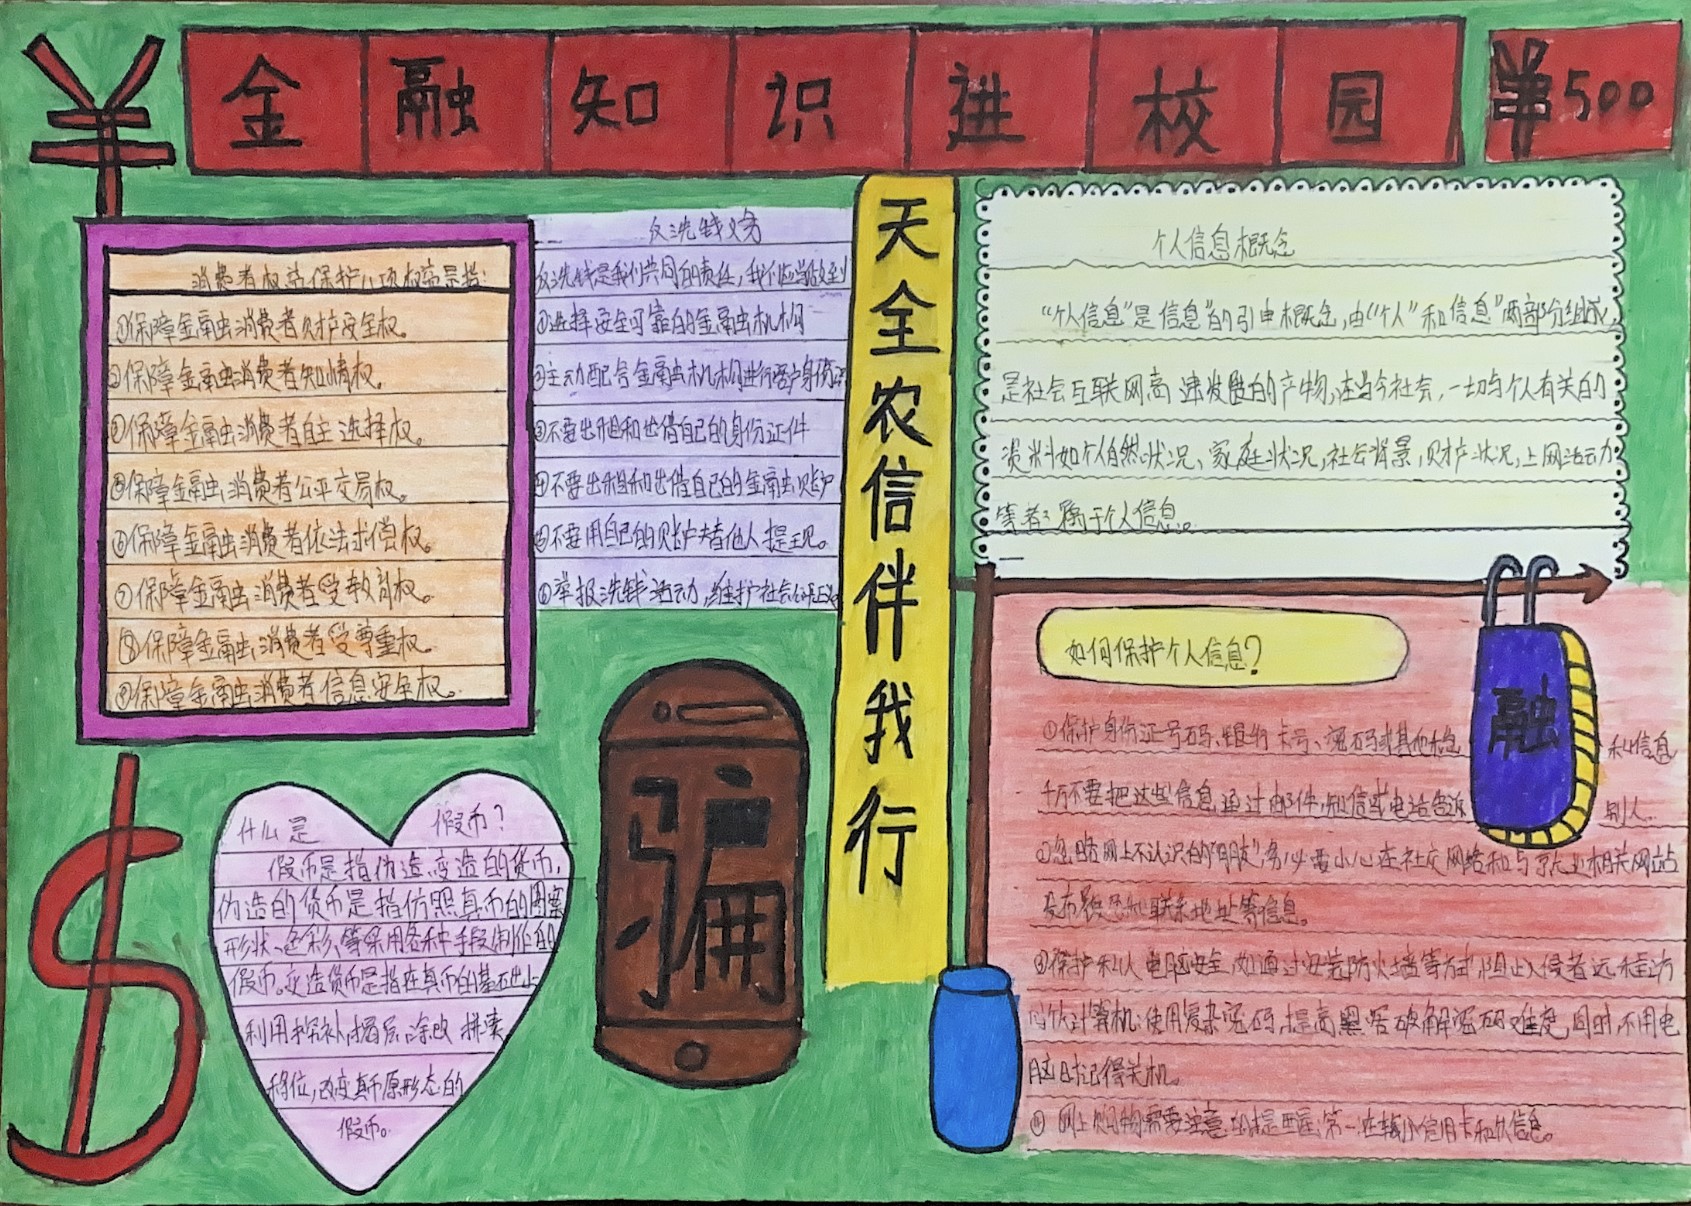 金融知识进校园
500
天全农信伴我行
消费者权益保护八项权益是指:
①保障金融消费者财产安全权。
②保障金融消费者知情权。
③保障金融消费者自主选择权。
保障金融消费者公平交易权。
保障金融消费者依法求偿权。
⑦保障金融消费者受教育权。
⑧保障金融消费者受尊重权。
⑨保障金融消费者信息安全权。
反洗钱义务
反洗钱是我们共同的责任,我们应当做到
①选择安全可靠的金融机构
②主动配合金融机构进行客户身份
③不要出租和出借自己的身份证件
④不要出租和出借自己的金融账户
⑤不要用自己的账户替他人提现。
⑥举报洗钱活动,维护社会公平正义
个人信息概念
“个人信息”是信息”的引申概念,由“个人”和信息”两部分组成,
是社会互联网高速发展的产物,在当今社会,一切与个人有关的
资料如个人自然状况、家庭状况,社会背景,财产状况,上网活动
等者属于个人信息。
如何保护个人信息?
①保护身份证号码、银行卡号、密码或其他私 私信息
千万不要把这些信息通过邮件,短信或电话告诉 别人。
②忽略网上不认识的“朋友”务必要小心在社交网络和与就业相关网站
发布 联系地址等信息。
③保护私人电脑安全,如通过安装防火墙等方式,阻止入侵者远程访
问计算机:使用复杂密码,提高黑客破解密码难度,同时,不用电
脑时记得关机。
④网上购物需要注意的提醒:第一 信用卡和 信息。
融
骗
什么是 假币?
假币是指伪造、变造的货币,
伪造的货币是指仿照真币的图案
形状、色彩、等采用各种手段制作的
假币。变造货币是指在真币的基础上
利用挖补,揭层,涂改,拼凑
移位,改变真币原形态的
假币。